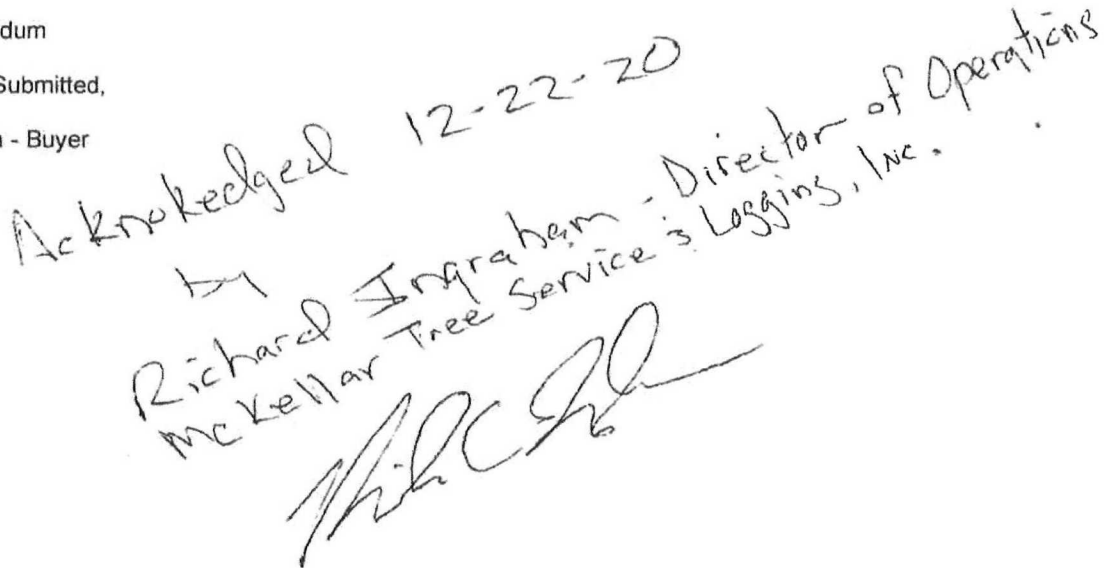 dum
Submitted,
- Buyer
Acknokedged 12-22-20
by
Richard Ingraham - Director of Operations
McKellar Tree Service & Logging, Inc.